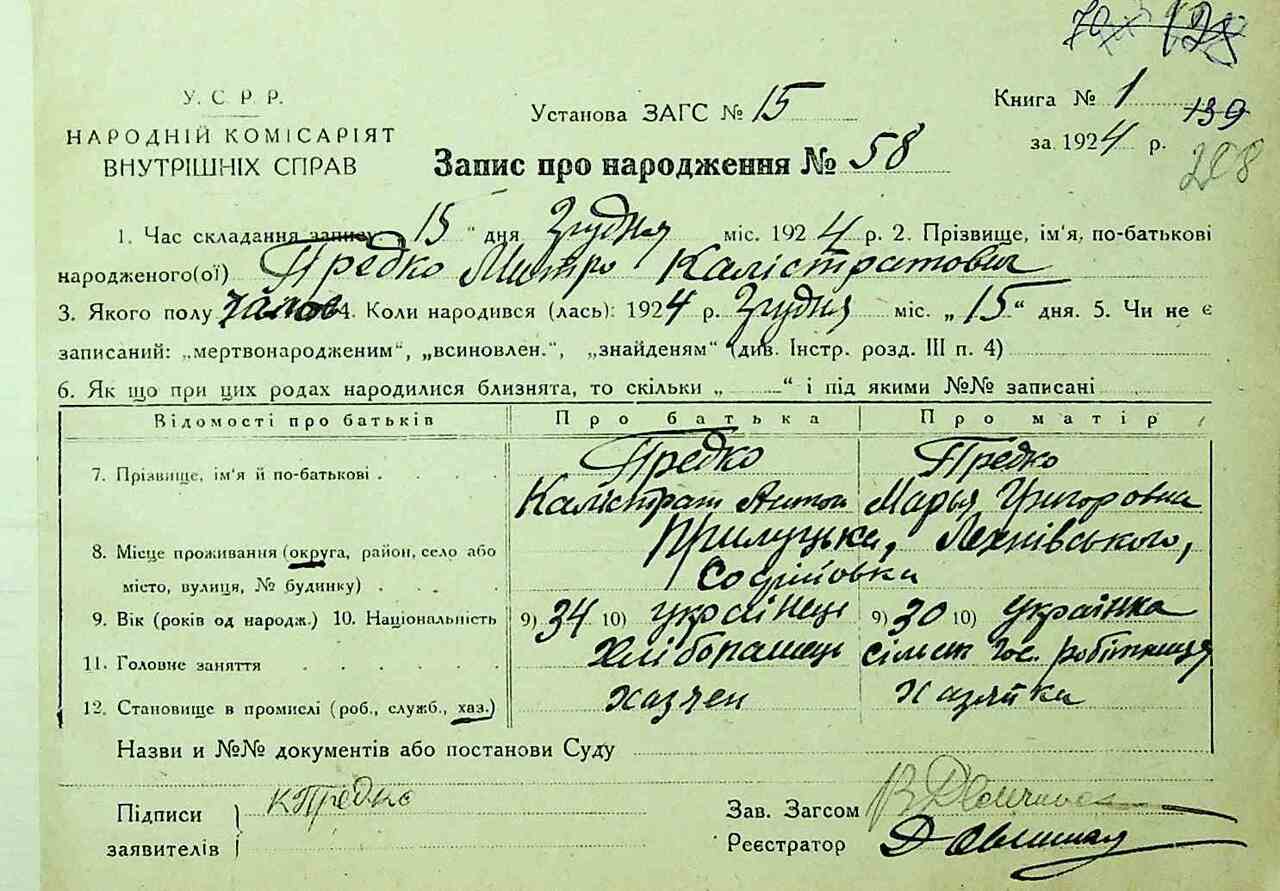 У. С. Р. Р.
НАРОДНІЙ КОМІСАРІЯТ
ВНУТРІШНІХ СПРАВ
Установа ЗАГС № 15
Запис про народження № 58
Книга № 1
139
за 1924 р.
208
1. Час складання запису „15“ дня Грудня міс. 1924 р. 2. Прізвище, ім'я, по-батькові
народженого(ої) Предко Митро Калістратович
3. Якого полу чолов 4. Коли народився (лась): 1924 р. Грудня міс. „15“ дня. 5. Чи не є
записаний: „мертвонародженим“, „всиновлен.“, „знайденям“ (див. Інстр. розд. III п. 4)
6. Як що при цих родах народилися близнята, то скільки „ “ і під якими №№ записані
Відомості про батьків Про батька Про матір
7. Прізвище, ім'я й по-батькові Предко Предко
Калістрат Антон Марья Григоровна
8. Місце проживання (округа, район, село або Прилуцька,
місто, вулиця, № будинку) Софіїовка
9. Вік (років од народж.) 10. Національність 9) 34 10) українець 9) 30 10) українка
11. Головне заняття сільск гос. робітниця
12. Становище в промислі (роб., служб., хаз.) хазяйка
Назви и №№ документів або постанови Суду
Підписи К Предко
заявителів
Зав. Загсом
Реєстратор